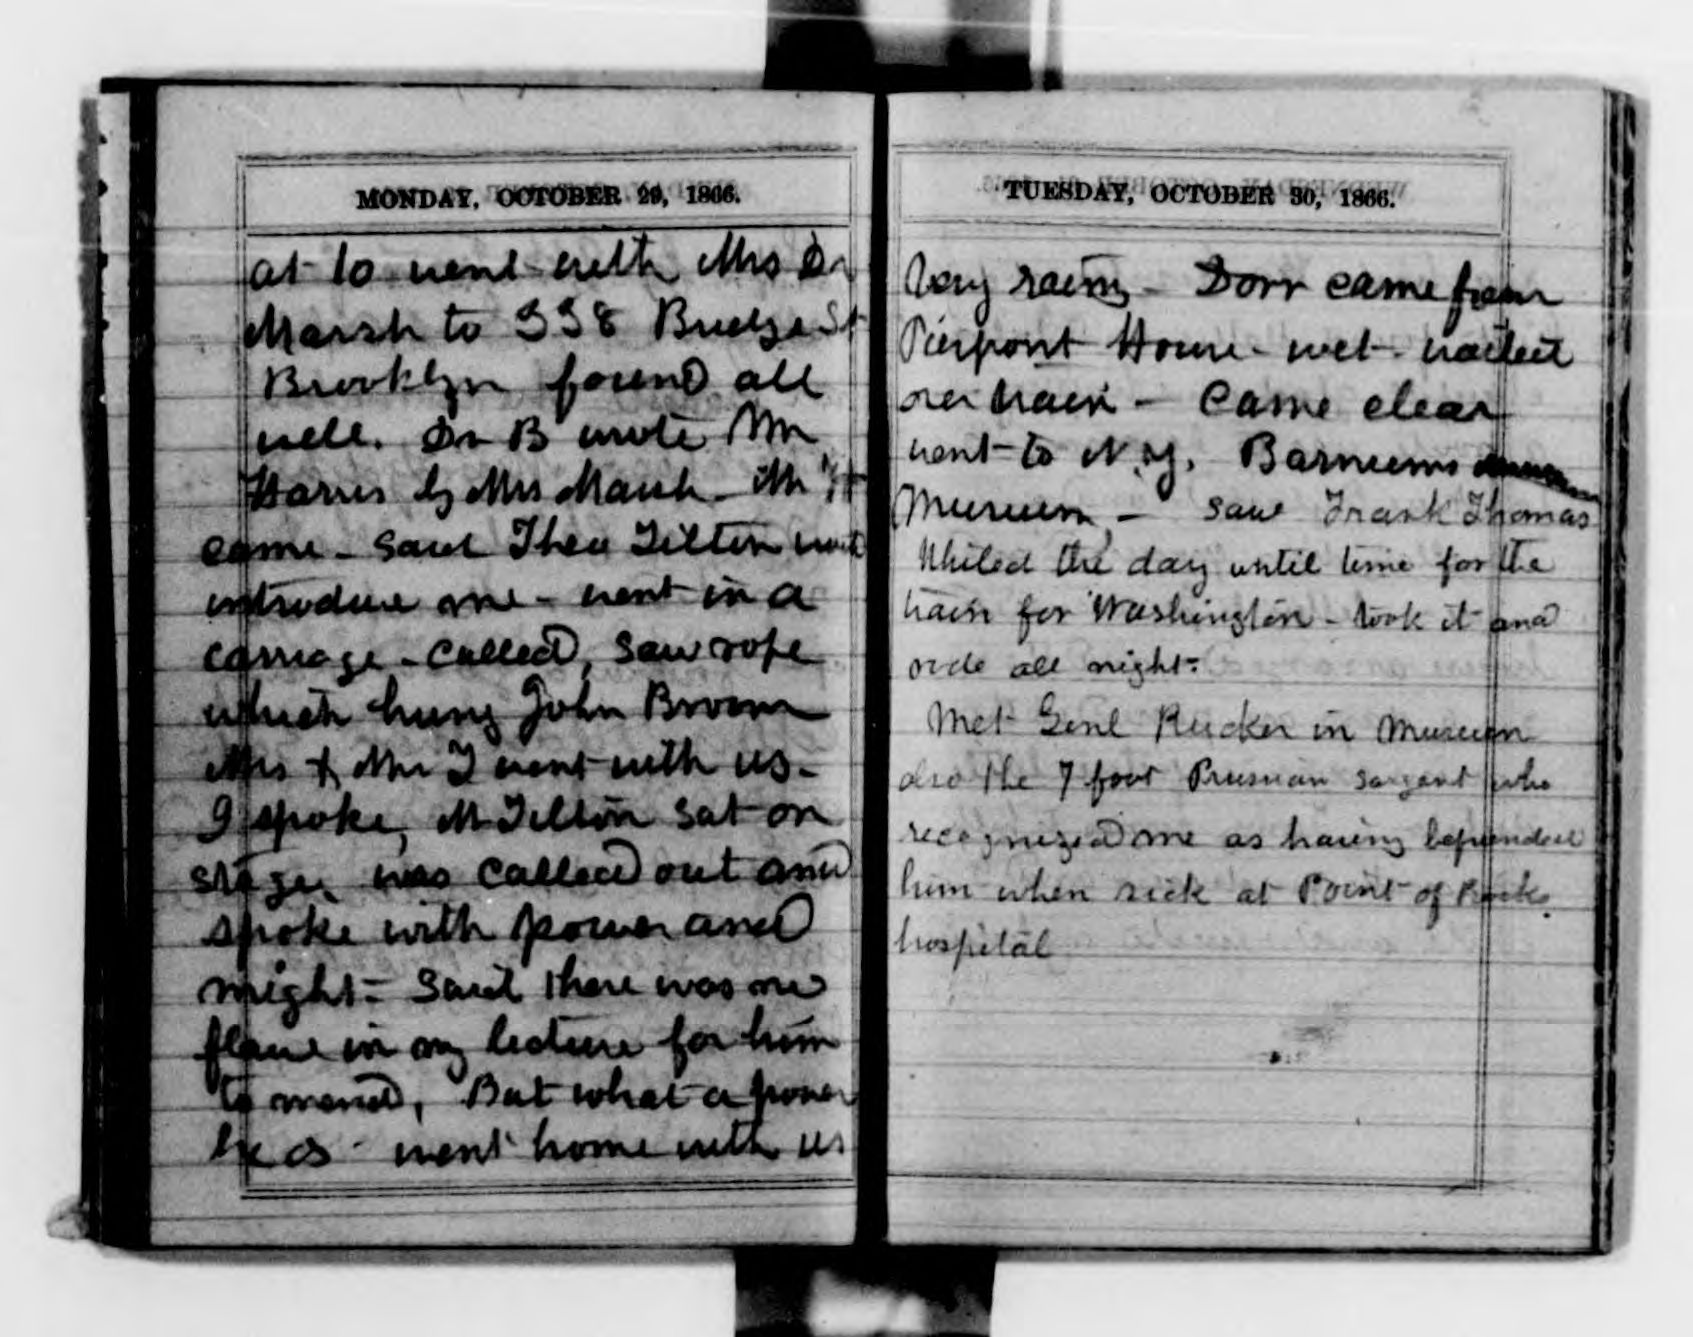 MONDAY, OCTOBER 29, 1866.
at 10 went with Mrs Dr
Marsh to 338 Bridge St
Brooklyn found all
well. Dr B wrote Mr
Harris by Mrs Marsh - Mr H
came - said Theo Tilton would
introduce me - went in a
carriage - called, saw rope
which hung John Brown
Mrs & Mr T went with us -
I spoke, Mr Tilton sat on
stage, was called out and
spoke with power and
might - said there was no
flaw in my lecture for him
to mend, But what a power
he is - went home with us
TUESDAY, OCTOBER 30, 1866.
Very rainy - Dorr came from
Pierpont House - wet - waited
over train - Came clear
went to N.Y. Barnums
Museum, - saw Frank Thomas
Whiled the day until time for the
train for Washington - took it and
rode all night -
Met Genl Rucker in Museum
also the 7 foot Prussian Sargent who
recognized me as having befriended
him when sick at Point of Rocks
hospital